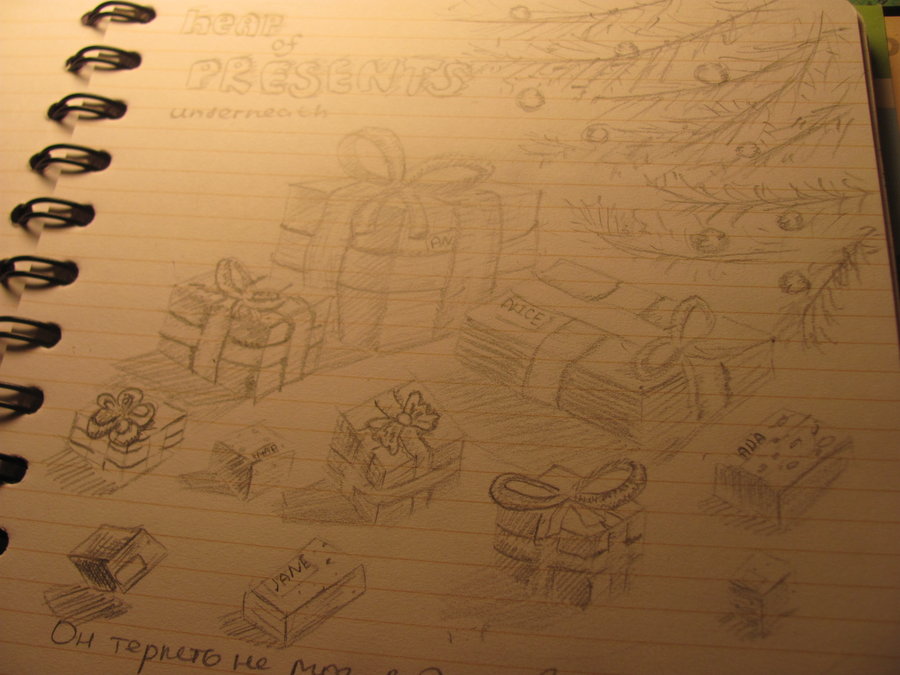 heap
of
PRESENTS
underneath
AN
ALICE
ADA
JANE
Он терпеть не мог